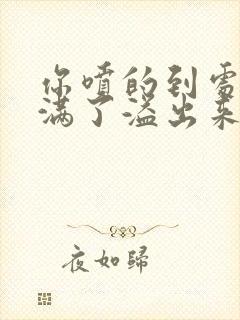 你喷的到处
满了溢出来
夜如歸